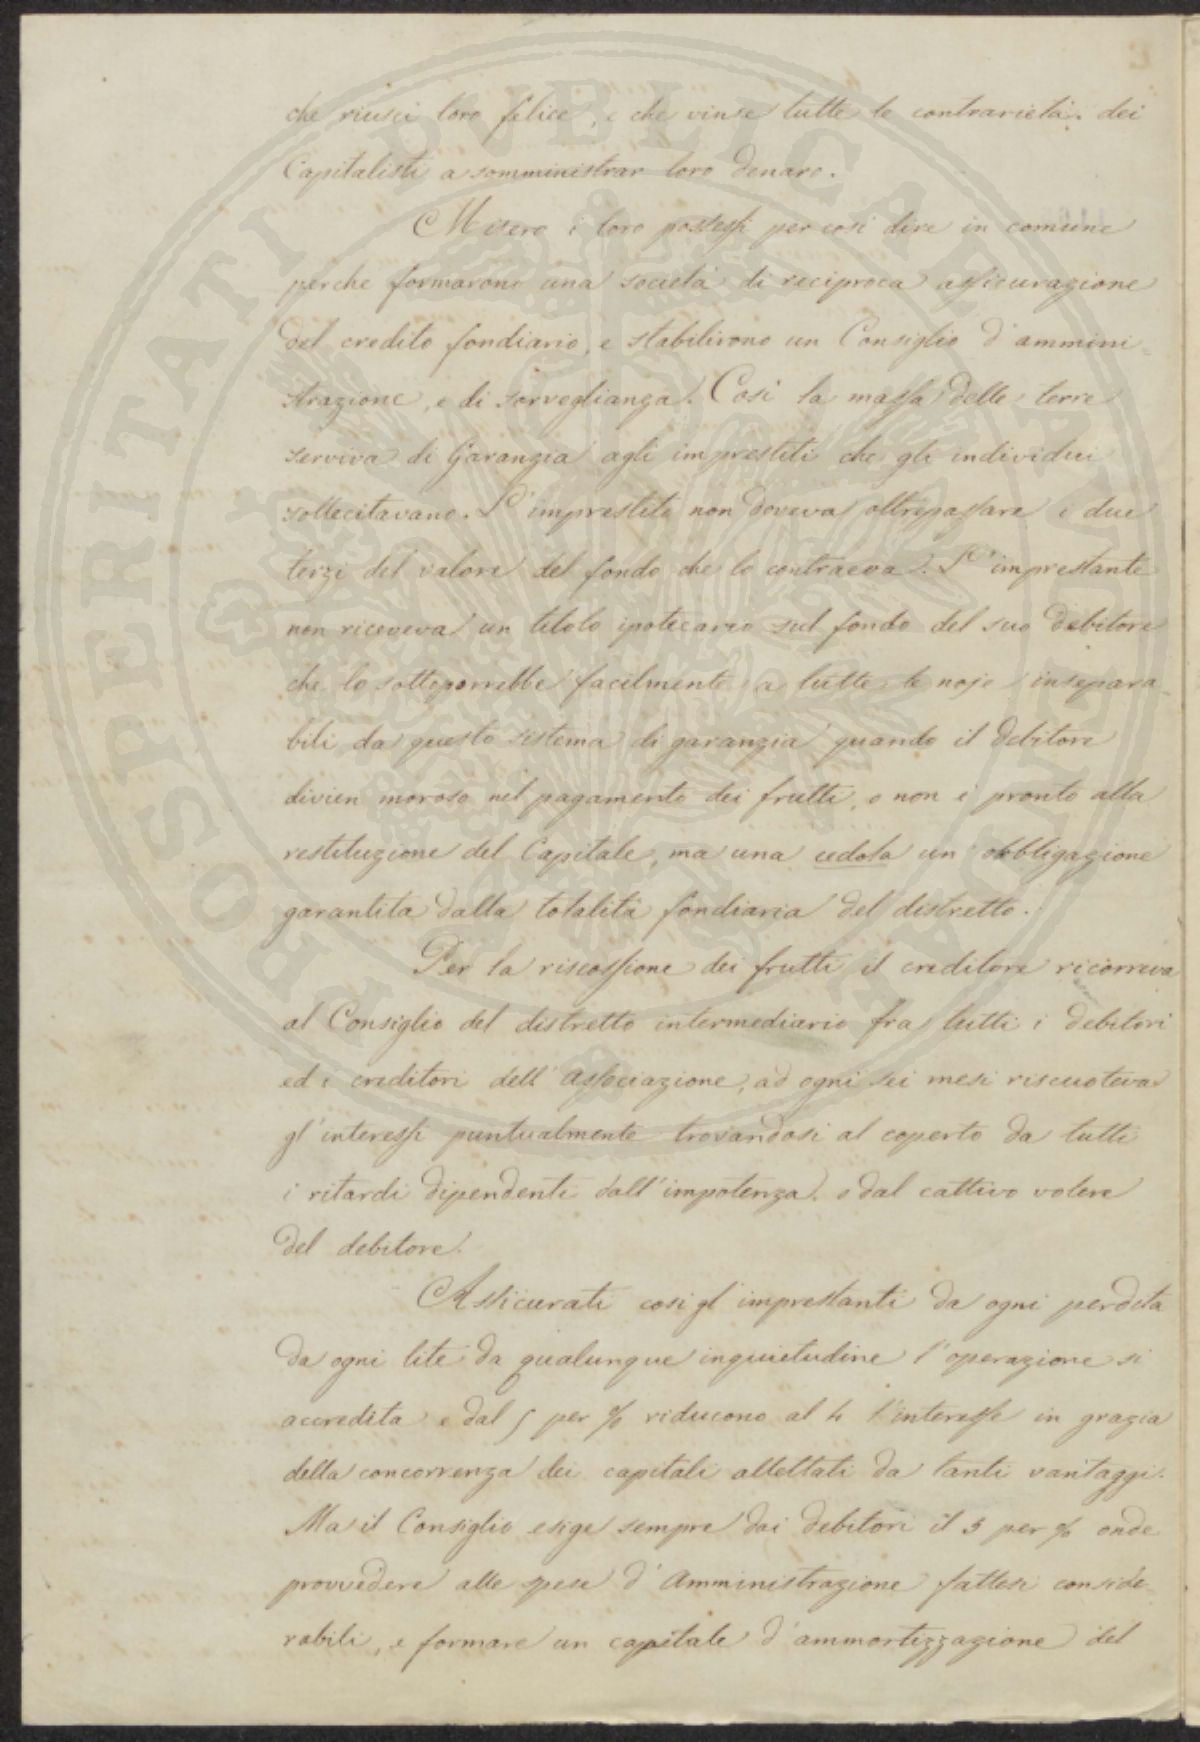 che riusci loro felice, e che vinse tutte le contrarietà dei
Capitalisti a somministrar loro denaro.
Misero i loro possessi per così dire in comune
perche formarono una società di reciproca assicurazione
del credito fondiario, e stabilirono un Consiglio d'ammini-
strazione, e di sorveglianza. Così la massa delle terre
serviva di Garanzia agli imprestiti che gli individui
sollecitavano. L'imprestito non doveva oltrepassare i due
terzi del valore del fondo che lo contraeva. L'imprestante
non riceveva un titolo ipotecario sul fondo del suo debitore
che lo sottoporrebbe facilmente a tutte le noje insepara-
bili da questo sistema di garanzia quando il debitore
divien moroso nel pagamento dei frutti, o non è pronto alla
restituzione del Capitale, ma una cedola un obbligazione
garantita dalla totalità fondiaria del distretto.
Per la riscossione dei frutti il creditore ricorreva
al Consiglio del distretto intermediario fra tutti i debitori
ed i creditori dell'Associazione, ad ogni sei mesi riscuoteva
gl'interessi puntualmente trovandosi al coperto da tutti
i ritardi dipendenti dall'impotenza, o dal cattivo volere
del debitore.
Assicurati così gl'imprestanti da ogni perdita
da ogni lite da qualunque inquietudine l'operazione si
accredita e dal 5 per % riducono al 4 l'interesse in grazia
della concorrenza dei capitali allettati da tanti vantaggi.
Ma il Consiglio esige sempre dai debitori il 5 per % onde
provvedere alle spese d'Amministrazione fattesi conside-
rabili, e formare un capitale d'ammortizzazione del
PROSPERITATI PVBLICAE AVGENDAE